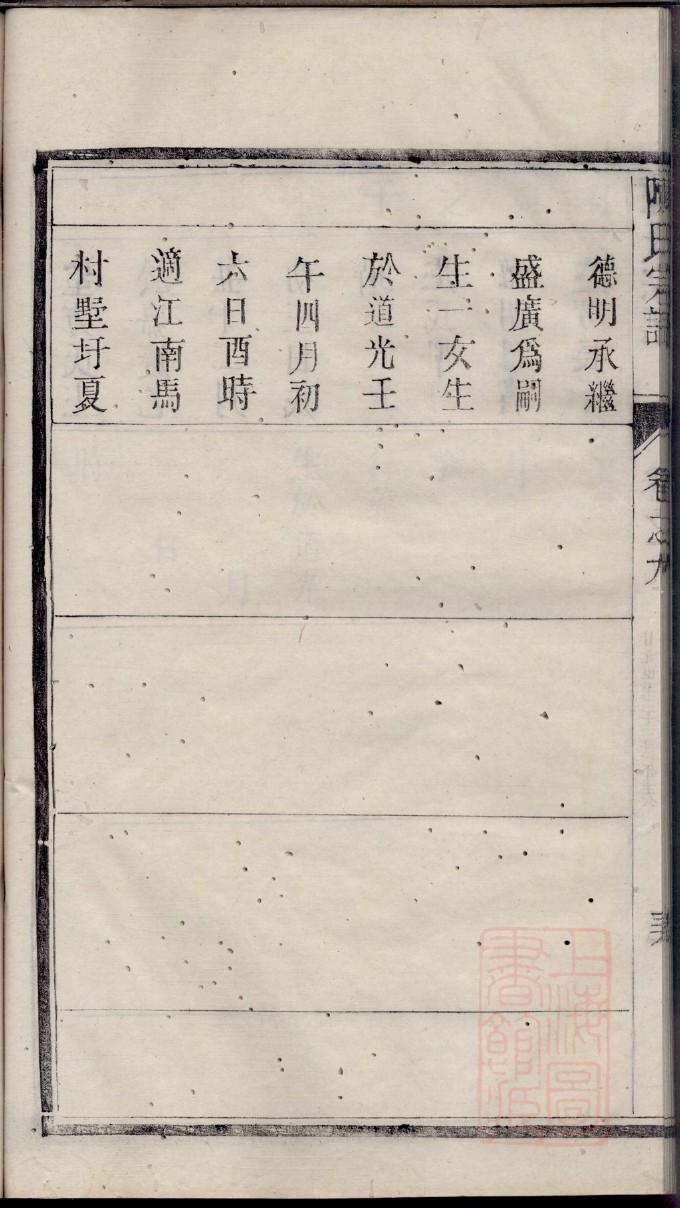 陳氏宗譜
卷之九
德明承繼
盛廣爲嗣
生一女生
於道光壬
午四月初
六日酉時
適江南馬
村墅圩夏
上海圖
書館臧